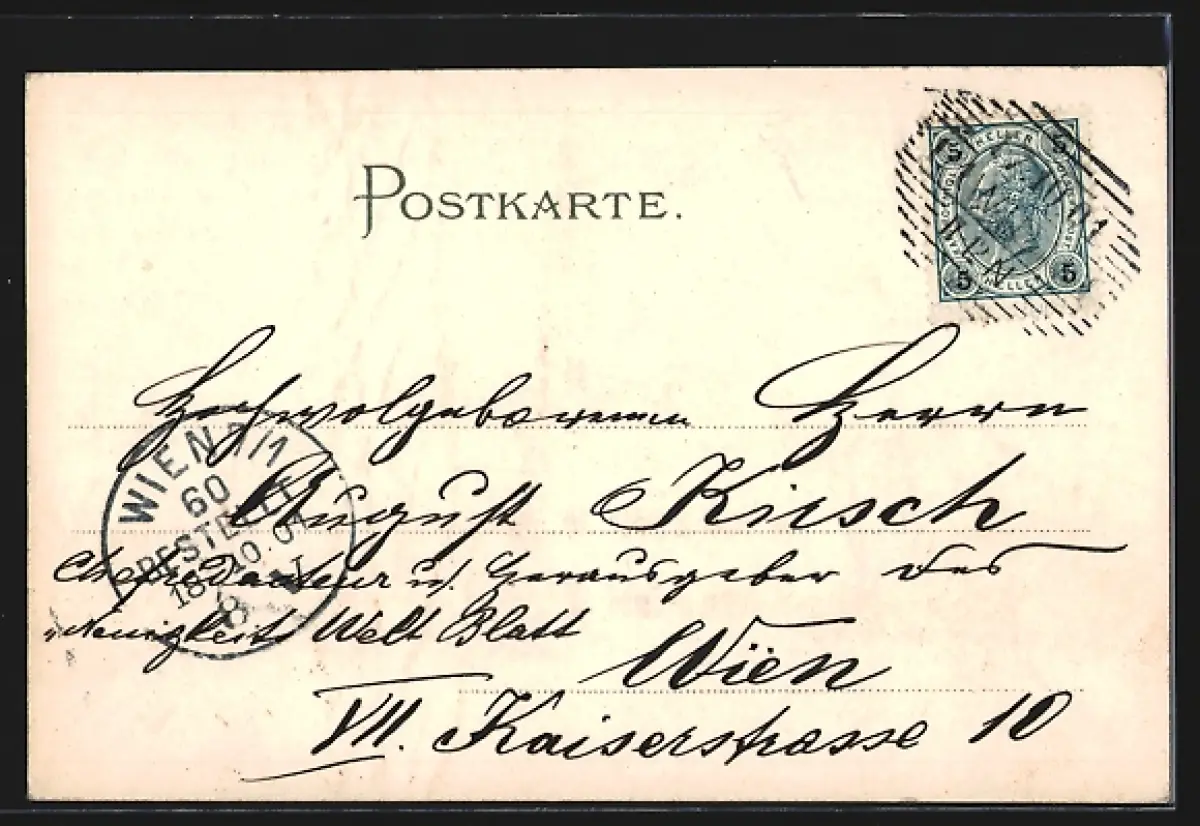 POSTKARTE.
HELLER
5 5
5 5
HELLER
Hochwolgeborenen Herrn
WIEN 7/1
60
August Kirsch
BESTELLT
18. 10. 01
8
Chefredacteur u. Herausgeber des
Neuigkeits Welt Blatt
Wien
VII. Kaiserstrasse 10